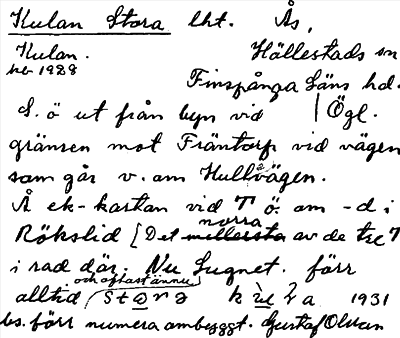 Kulan Stora lht. Ås,
Kulan. Hällestads sn
hbr 1928 Finspånga Läns hd.
L. ö ut från byn vid Ögl.
gränsen mot Fräntorp vid vägen
som går v. om Hultvägen.
Å ek-kartan vid T ö. om -d i
norra
Rökslid [Det mellersta av de tre T
i rad där. Nu Lugnet. förr
och oftast ännu
alltid 1931
bs. förr numera ombyggt. Gustaf Olsson